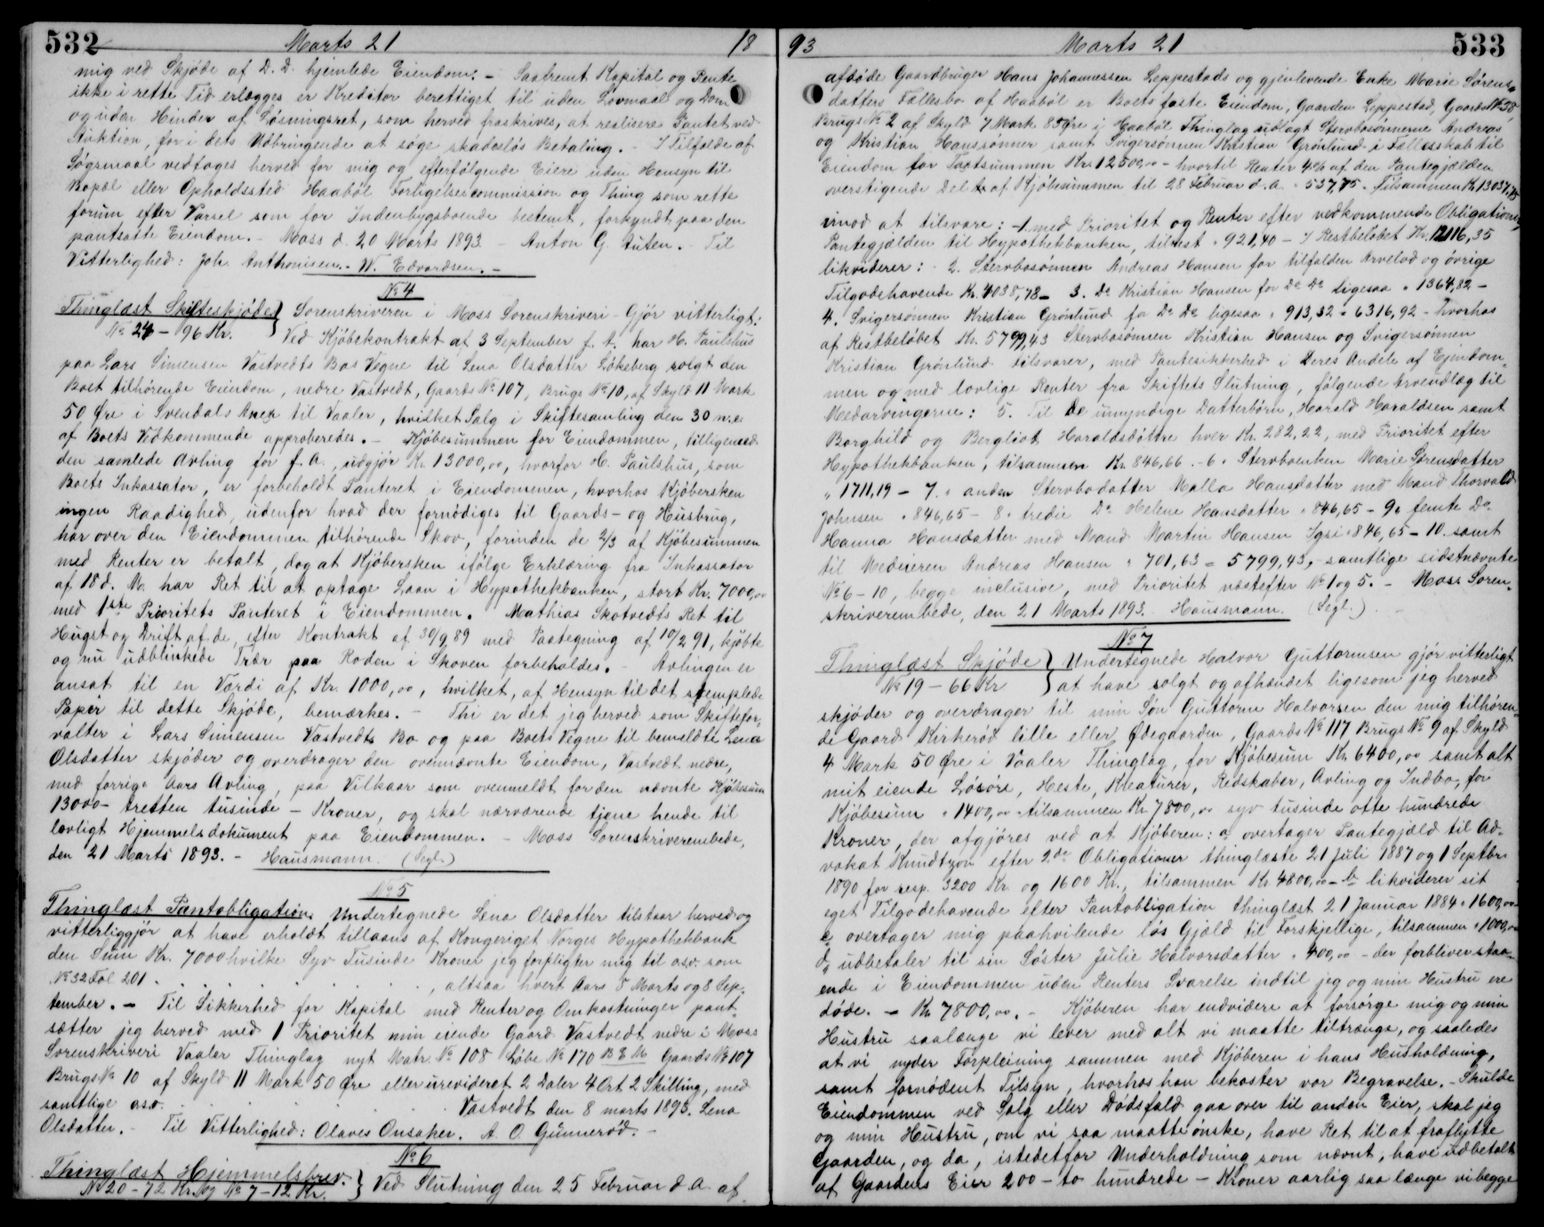 532 Marts 21 18
mig ved Skjøde af D. D. hjemlede Eiendom. – Saafremt Kapital og Rente
ikke i rette Tid erlægges er Kreditor berettiget til uden Lovmaal og Dom
og uden Hinder af Løsningsret, som herved fraskrives, at realisere Pantet ved
Auktion, for i dets Udbringende at søge skadesløs Betaling. – I Tilfælde af
Søgsmaal vedtages herved for mig og efterfølgende Eiere uden Hensyn til
Bopæl eller Opholdssted Haabøl Forligelsescommission og Thing som rette
forum efter Varsel som for Indenbygsboende bestemt, forkyndt paa den
pantsatte Eiendom. – Moss d. 20 Marts 1893 – Anton G. Auten. – Til
Vitterlighed: Joh. Anthonisen. – W. Edvardsen. –
№ 4
Thinglæst Skifteskjøde Sorenskriveren i Moss Sorenskriveri – Gjør vitterligt:
№ 24 – 96 Kr. Ved Kjøbekontrakt af 3 September f. A. har H. Paulshus
paa Lars Simensen Vastvedts Bos Vegne til Lena Olsdatter Løkeberg solgt den
Boet tilhørende Eiendom, nedre Vastvedt, Gaards № 107, Brugs № 10, af Skyld 11 Mark
50 Øre i Svendals Anex til Vaaler, hvilket Salg i Skiftesamling den 30 n. e.
af Boets Vedkommende approberedes. – Kjøbesummen for Eiendommen, tilligemed
den samlede Avling for f. A., udgjør Kr. 13000,00, hvorfor H. Paulshus, som
Boets Inkassator, er forbeholdt Panteret i Eiendommen, hvorhos Kjøbersken
ingen Raadighed, udenfor hvad der fornødiges til Gaards- og Husbrug,
har over den Eiendommen tilhørende Skov, forinden de 2/3 af Kjøbesummen
med Renter er betalt, dog at Kjøbersken ifølge Erklæring fra Inkassator
af 18 d. M. har Ret til at optage Laan i Hypothekbanken, stort Kr. 7000,00
med 1ste Prioritets Panteret i Eiendommen. Mathias Skotvedts Ret til
Hugst og Drift af de, efter Kontrakt af 30/9 89 med Paategning af 10/2 91, kjøbte
og nu udblinkede Trær paa Roden i Skoven forbeholdes. – Avlingen er
ansat til en Værdi af Kr. 1000,00, hvilket, af Hensyn til det stemplede
Papir til dette Skjøde, bemærkes. – Thi er det jeg herved som Skiftefor-
valter i Lars Simensen Vastvedts Bo og paa Boets Vegne til bemeldte Lena
Olsdatter skjøder og overdrager den ovennævnte Eiendom, Vastvedt nedre,
med forrige Aars Avling, paa Vilkaar som ovenmeldt for den nævnte Kjøbesum
13000 – tretten tusinde – Kroner, og skal nærværende tjene hende til
lovligt Hjemmelsdokument paa Eiendommen. – Moss Sorenskriverembede,
den 21 Marts 1893. – Hausmann. (Segl.)
№ 5
Thinglæst Pantobligation. Undertegnede Lena Olsdatter tilstaar herved og
vitterliggjør at have erholdt tillaans af Kongeriget Norges Hypothekbank
den Sum Kr. 7000 hvilke Syv Tusinde Kroner jeg forpligter mig til osv. som
№ 32 Fol 201 . . . . . . . . , altsaa hvert Aars 8 Marts og 8 Sep-
tember. – Til Sikkerhed for Kapital med Renter og Omkostninger pant-
sætter jeg herved med 1 Prioritet min eiende Gaard Vastvedt nedre i Moss
Sorenskriveri Vaaler Thinglag nyt Matr. № 108 Løbe № 170 Gaards № 107
Brugs № 10 af Skyld 11 Mark 50 Øre eller urevideret 2 Daler 4 Ort 2 Skilling, med
samtlige osv. . . . . . Vastvedt den 8 marts 1893. Lena
Olsdatter. – Til Vitterlighed: Olaves Onsaker. A. O. Gunnerød. –
№ 6
Thinglæst Hjemmelsbrev. Ved Slutning den 25 Februar d. A. af
№ 20 – 72 Kr. og № 7 – 12 Kr.
93 Marts 21 533
afdøde Gaardbruger Hans Johannessen Leppestads og gjenlevende Enke Marie Sørens-
datters Fællesbo af Haabøl er Boets faste Eiendom, Gaarden Leppestad, Gaards № 38
Brugs № 2 af Skyld 7 Mark 85 Øre i Haabøl Thinglag udlagt Stervbosønnerne Andreas
og Kristian Hanssønner samt Svigersønnen Kristian Grønlund i Fællesskab til
Eiendom for Taxtsummen Kr. 12500,00 – hvortil Renter 4% af den Pantegjælden
overstigende Del af Kjøbesummen til 28 Februar d. A. „ 537,75. Tilsammen Kr. 13037,75
imod at tilsvare: 1. med Prioritet og Renter efter vedkommende Obligationer,
Pantegjælden til Hypothekbanken, tilrest „ 921,40 – I Restbeløbet Kr. 12116,35
likviderer: 2. Stervbosønnen Andreas Hansen for tilfalden Arvelod og øvrige
Tilgodehavende Kr. 4038,78 – 3. Do Kristian Hansen for Do Do ligesaa „ 1364,82 –
4. Svigersønnen Kristian Grønlund for Do Do ligesaa „ 913,32 = 6316,92 – hvorhos
af Restbeløbet Kr. 5799,43 Stervbosønnen Kristian Hansen og Svigersønnen
Kristian Grønlund tilsvarer, med Pantesikkerhed i deres Andele af Eiendom-
men og med lovlige Renter fra Skiftets Slutning, følgende Arveudlæg til
Medarvingerne: 5. Til de umyndige Datterbørn, Harald Haraldsen samt
Borghild og Bergliot Haraldsdøttre hver Kr. 282,22, med Prioritet efter
Hypothekbanken, tilsammen Kr. 846,66. – 6. Stervboenken Marie Sørensdatter
„ 1711,19 – 7. anden Stervbodatter Malla Hansdatter med Mand Thorvald
Johnsen „ 846,65 – 8. tredie Do Helene Hansdatter „ 846,65 – 9. femte Do
Hanna Hansdatter med Mand Martin Hansen „ 846,65 – 10. samt
til Medeieren Andreas Hansen „ 701,63 = 5799,43, – samtlige sidstnævnte
№ 6 – 10, begge inclusive, med Prioritet næstefter № 1 og 5. – Moss Soren-
skriverembede, den 21 Marts 1893. Hausmann. (Segl.)
№ 7
Thinglæst Skjøde Undertegnede Halvor Guttormsen gjør vitterligt
№ 19 – 66 Kr at have solgt og afhændet ligesom jeg herved
skjøder og overdrager til min Søn Guttorm Halvorsen den mig tilhøren-
de Gaard Kirkerød lille eller Ødegaarden, Gaards № 117 Brugs № 9 af Skyld
4 Mark 50 Øre i Vaaler Thinglag, for Kjøbesum Kr. 6400,00 samt alt
mit eiende Løsøre, Heste, Kreaturer, Redskaber, Avling og Indbo, for
Kjøbesum „ 1400,00 tilsammen Kr. 7800,00 syv tusinde otte hundrede
Kroner, der afgjøres ved at Kjøberen: a, overtager Pantegjæld til Ad-
vokat Knudtzon efter 2de Obligationer thinglæste 21 Juli 1887 og 1 Septbr
1890 for resp. 3200 Kr. og 1600 Kr., tilsammen Kr. 4800,00 – b, likviderer sit
eget Tilgodehavende efter Pantobligation thinglæst 21 Januar 1884 „ 1600,00 –
c, overtager mig paahvilende løs Gjæld til Forskjellige, tilsammen „ 1000,00
d, udbetaler til sin Søster Julie Halvorsdatter „ 400,00 – der forbliver staa-
ende i Eiendommen uden Renters Svarelse indtil jeg og min Hustru ere
døde. – Kr. 7800,00. – Kjøberen har endvidere at forsørge mig og min
Hustru saalænge vi lever med alt vi maatte tiltrænge, og saaledes
at vi nyder Forpleining sammen med Kjøberen i hans Husholdning,
samt fornødent Tilsyn, hvorhos han bekoster vor Begravelse. – Skulde
Eiendommen ved Salg eller Dødsfald gaa over til anden Eier, skal jeg
og min Hustru, om vi saa maatte ønske, have Ret til at fraflytte
Gaarden, og da, istedetfor Underholdning som nævnt, have udbetalt
af Gaardens Eier 200 – to hundrede – Kroner aarlig saa længe vi begge